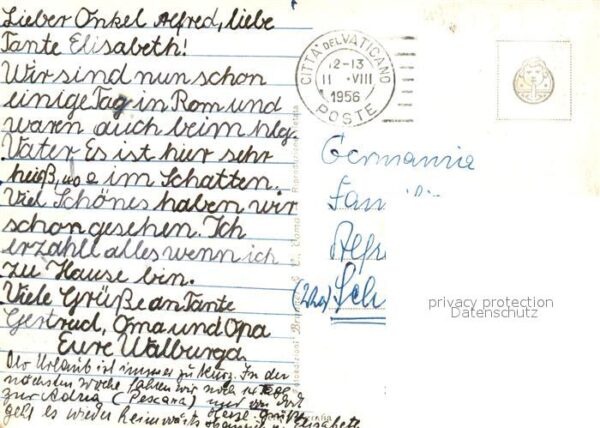 Lieber Onkel Alfred, liebe
Tante Elisabeth!
Wir sind nun schon
einige Tag in Rom und
waren auch beim hlg.
Vater Es ist hier sehr
heiß, im Schatten.
Viel Schönes haben wir
schon gesehen. Ich
erzähl alles wenn ich
zu Hause bin.
Viele Grüße an Tante
Gertrud, Oma und Opa
Eure Walburga
Der Urlaub ist immer zu kurz. In der
nächsten Woche fahren wir noch
zur Adria (Pescara) und von dort
geht es wieder heimwärts Herzl. Grüße
Elisabeth
CITTA' DEL VATICANO
12-13
11 VIII
1956
POSTE
Germania
Fam
Alfre
Sch
privacy protection
Datenschutz